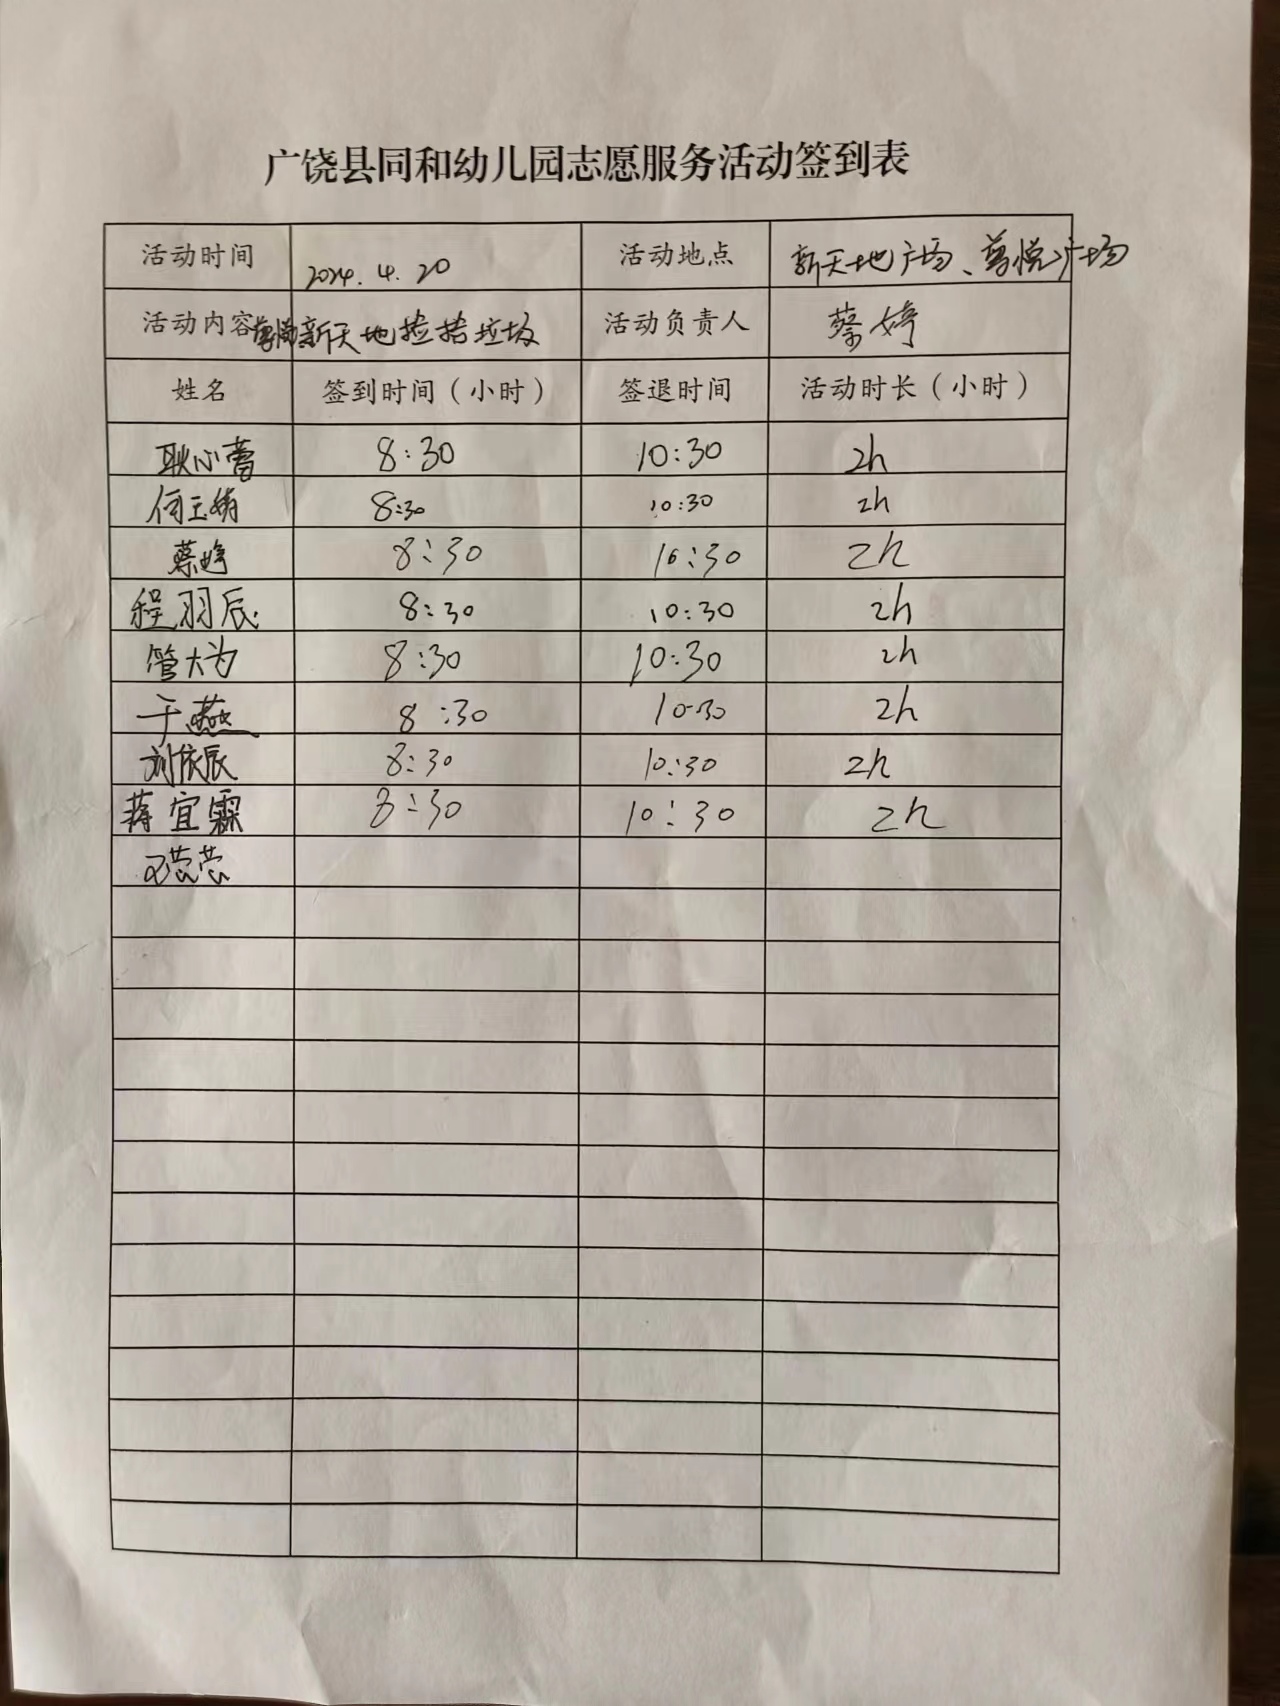 广饶县同和幼儿园志愿服务活动签到表
活动时间 2024.4.20 活动地点 新天地广场、尊悦广场
活动内容 尊悦新天地捡拾垃圾 活动负责人 蔡婷
姓名 签到时间（小时） 签退时间 活动时长（小时）
耿心蕾 8:30 10:30 2h
何玉娟 8:30 10:30 2h
蔡婷 8:30 10:30 2h
程羽辰 8:30 10:30 2h
管大为 8:30 10:30 2h
于燕 8:30 10:30 2h
刘依辰 8:30 10:30 2h
蒋宜霖 8:30 10:30 2h